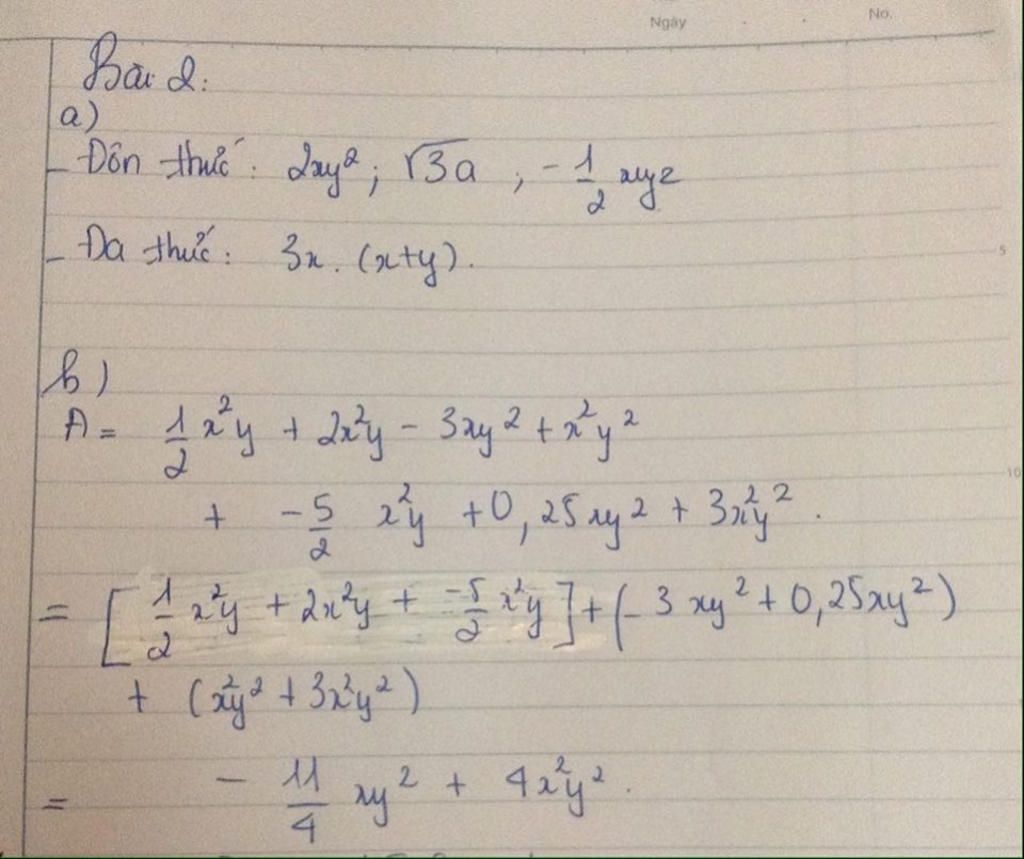 Ngày No.
Bài 2:
a)
- Đơn thức: 2xy²; √3a, -1/2 xyz
- Đa thức: 3x.(x+y).
5
b)
A = 1/2 x²y + 2x²y - 3xy² + x²y²
10
+ -5/2 x²y + 0,25xy² + 3x²y².
= [1/2 x²y + 2x²y + -5/2 x²y] + (-3xy² + 0,25xy²)
+ (x²y² + 3x²y²)
= - 11/4 xy² + 4x²y².